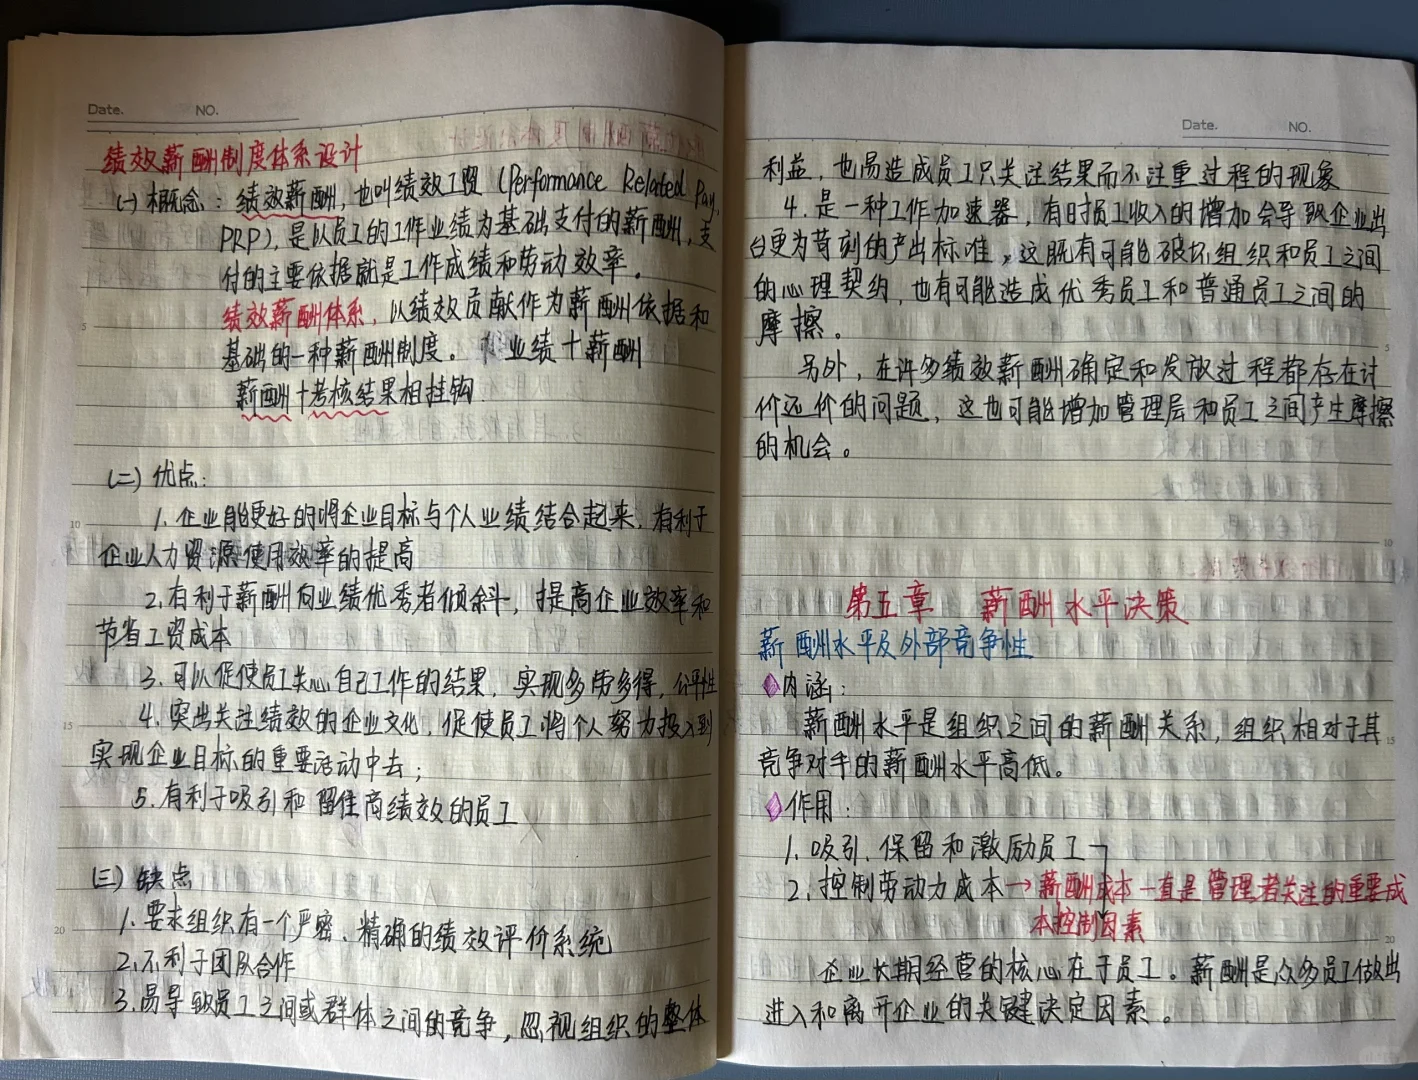 Date.　NO.
绩效薪酬制度体系设计
(一) 概念：绩效薪酬，也叫绩效工资 (Performance Related Pay,
PRP)，是以员工的工作业绩为基础支付的薪酬，支
付的主要依据就是工作成绩和劳动效率。
绩效薪酬体系，以绩效贡献作为薪酬依据和
基础的一种薪酬制度。业绩+薪酬
薪酬+考核结果相挂钩
(二) 优点：
1. 企业能更好的将企业目标与个人业绩结合起来，有利于
企业人力资源使用效率的提高
2. 有利于薪酬向业绩优秀者倾斜，提高企业效率和
节省工资成本
3. 可以促使员工关心自己工作的结果，实现多劳多得，公平性
4. 突出关注绩效的企业文化，促使员工将个人努力投入到
实现企业目标的重要活动中去；
5. 有利于吸引和留住高绩效的员工
(三) 缺点
1. 要求组织有一个严密、精确的绩效评价系统
2. 不利于团队合作
3. 易导致员工之间或群体之间的竞争，忽视组织的整体
Date.　NO.
利益，也易造成员工只关注结果而不注重过程的现象
4. 是一种工作加速器，有时员工收入的增加会导致企业出
台更为苛刻的产出标准，这既有可能破坏组织和员工之间
的心理契约，也有可能造成优秀员工和普通员工之间的
摩擦。
另外，在许多绩效薪酬确定和发放过程都存在讨
价还价的问题，这也可能增加管理层和员工之间产生摩擦
的机会。
第五章　薪酬水平决策
薪酬水平及外部竞争性
内涵：
薪酬水平是组织之间的薪酬关系，组织相对于其
竞争对手的薪酬水平高低。
作用：
1. 吸引、保留和激励员工
2. 控制劳动力成本→薪酬成本一直是管理者关注的重要成
本控制因素
企业长期经营的核心在于员工。薪酬是众多员工做出
进入和离开企业的关键决定因素。